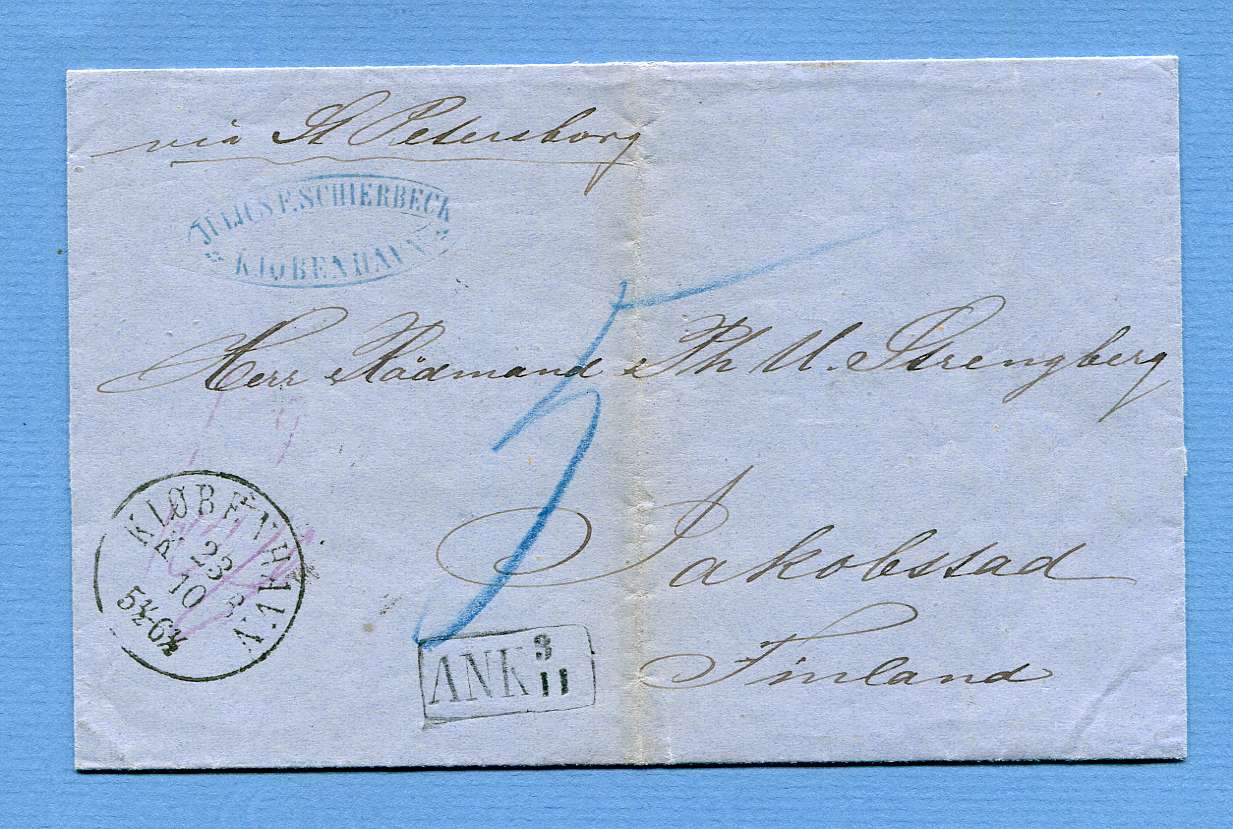 via St Petersborg
JULIUS F. SCHIERBECK
KIØBENHAVN
Herr Rådmand Ph U. Strengberg
KIØBENHAVN
K 23 B
10
5½-6½
Jakobstad
ANK 3/11
Finland